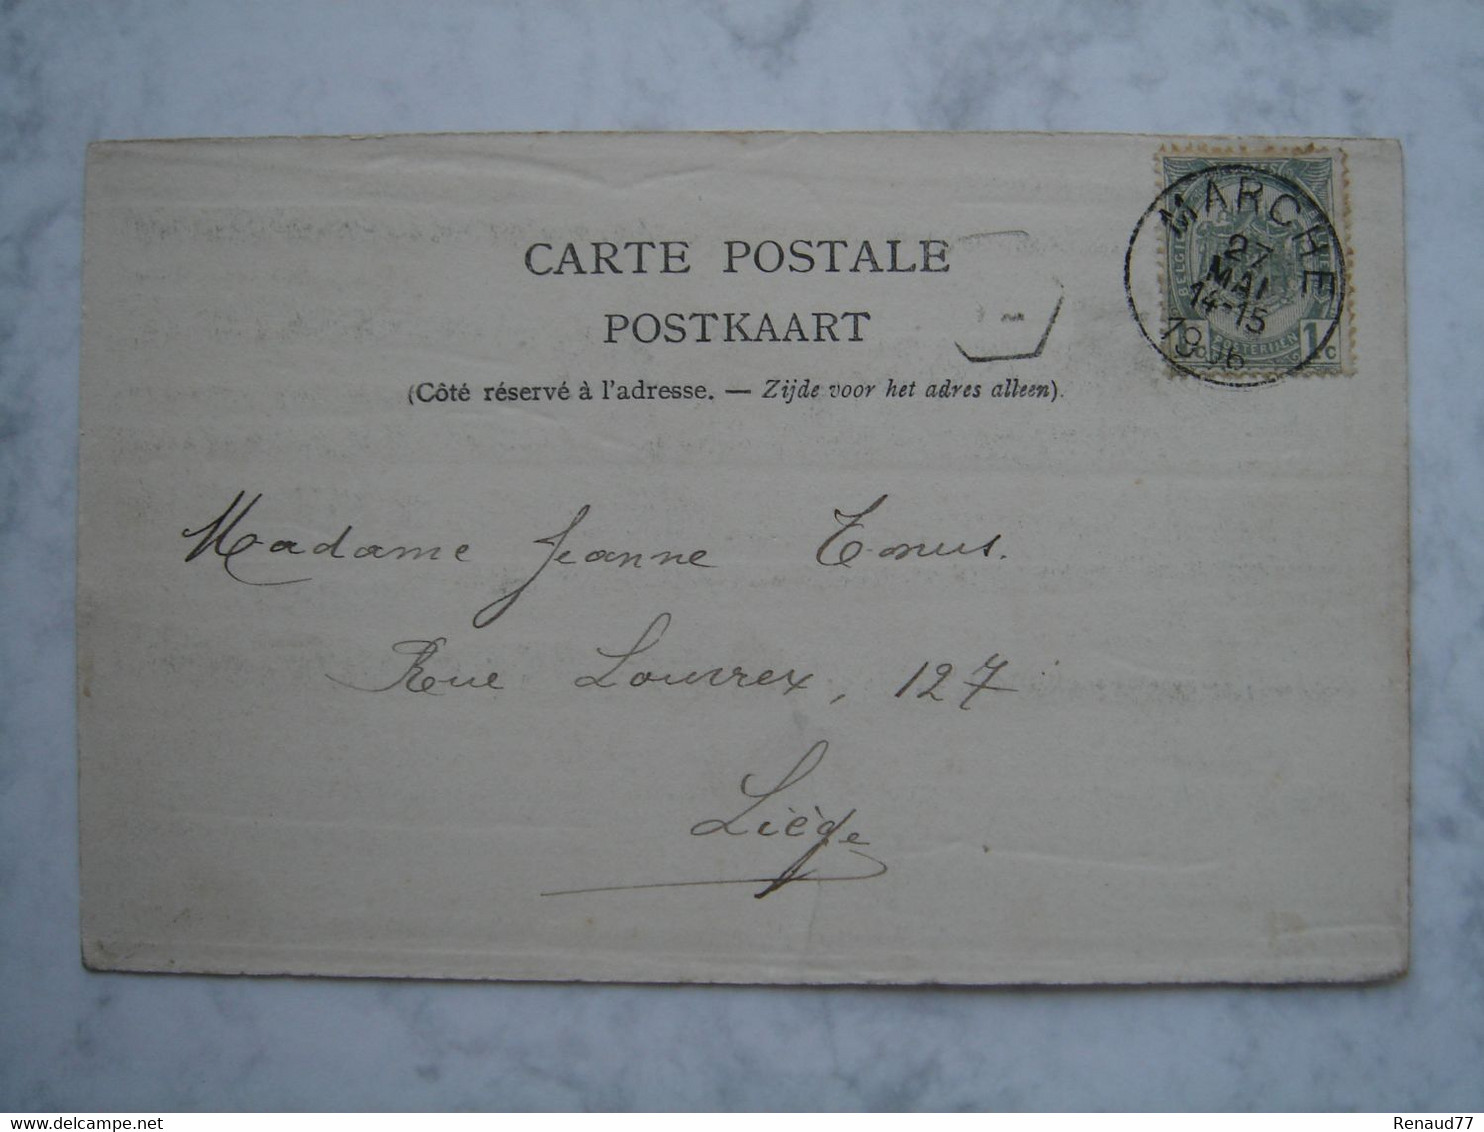 CARTE POSTALE
POSTKAART
(Côté réservé à l'adresse. — Zijde voor het adres alleen).
MARCHE
27
MAI
14-15
1906
BELGIE
POSTERIJEN
1c
Madame Jeanne
Rue Louvrex, 127
Liège
delcampe.net
Renaud77